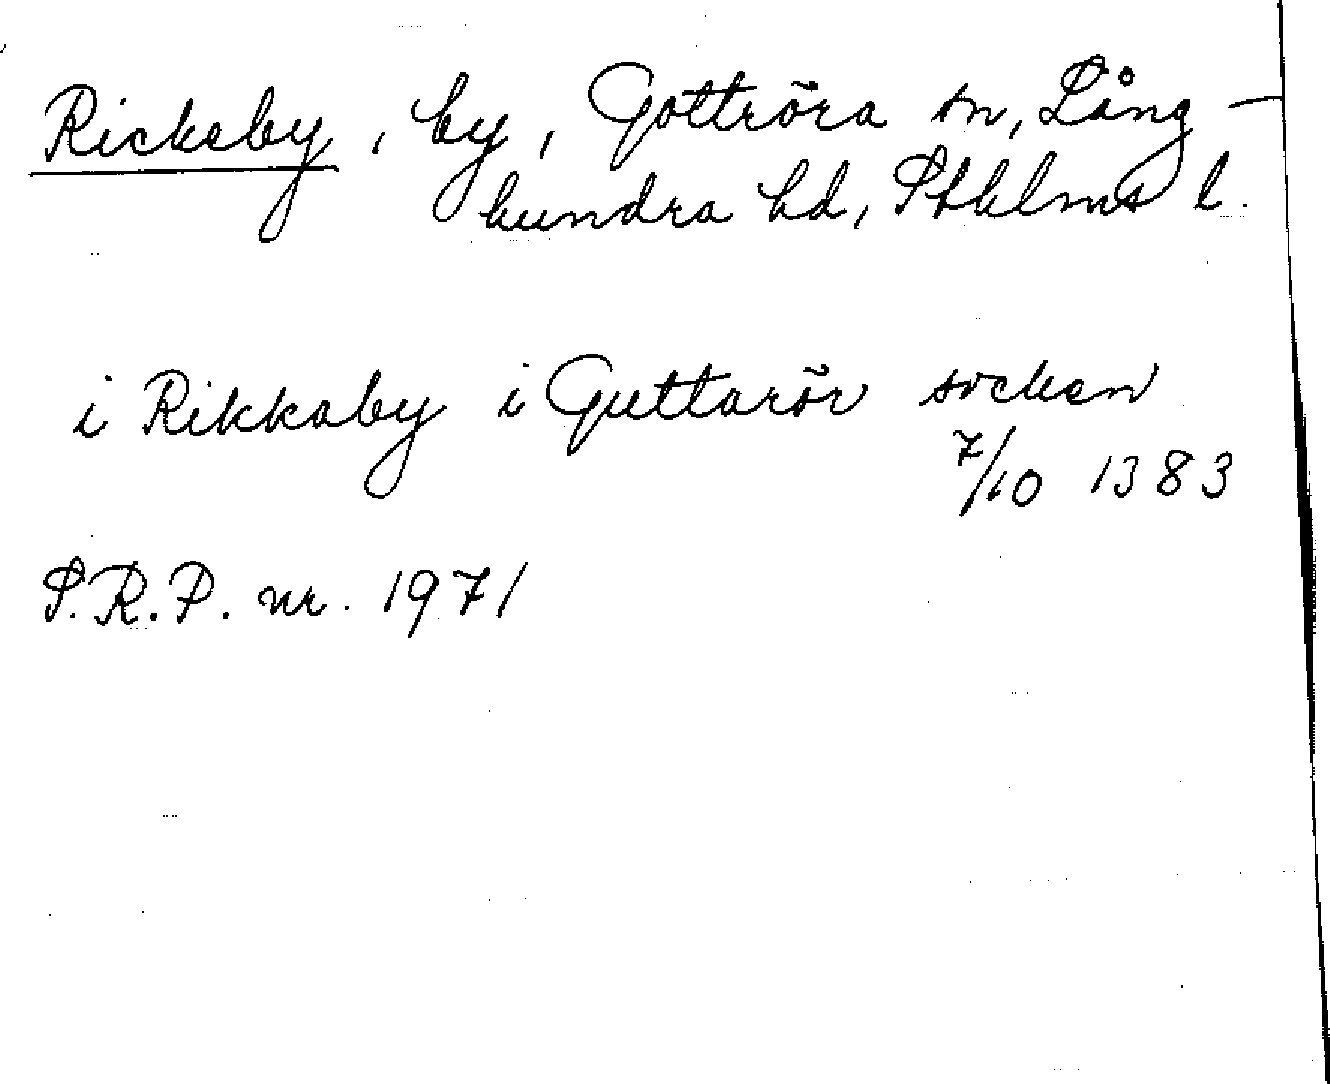 Rickeby, by, Gottröra sn, Lång-
hundra hd, Sthlms l.
i Rikkaby i Guttarör socken
7/10 1383
S.R.P. nr. 1971